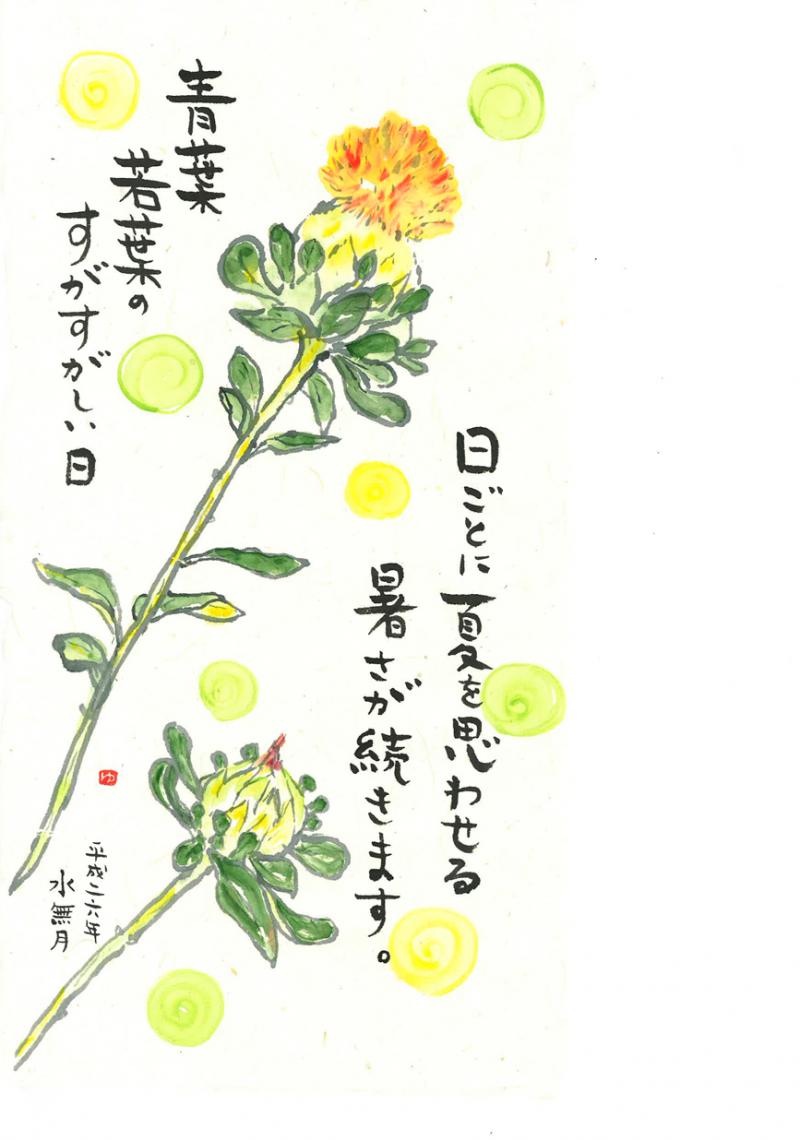 日ごとに夏を思わせる
暑さが続きます。
青葉
若葉の
すがすがしい日
平成二六年
水無月
ゆ